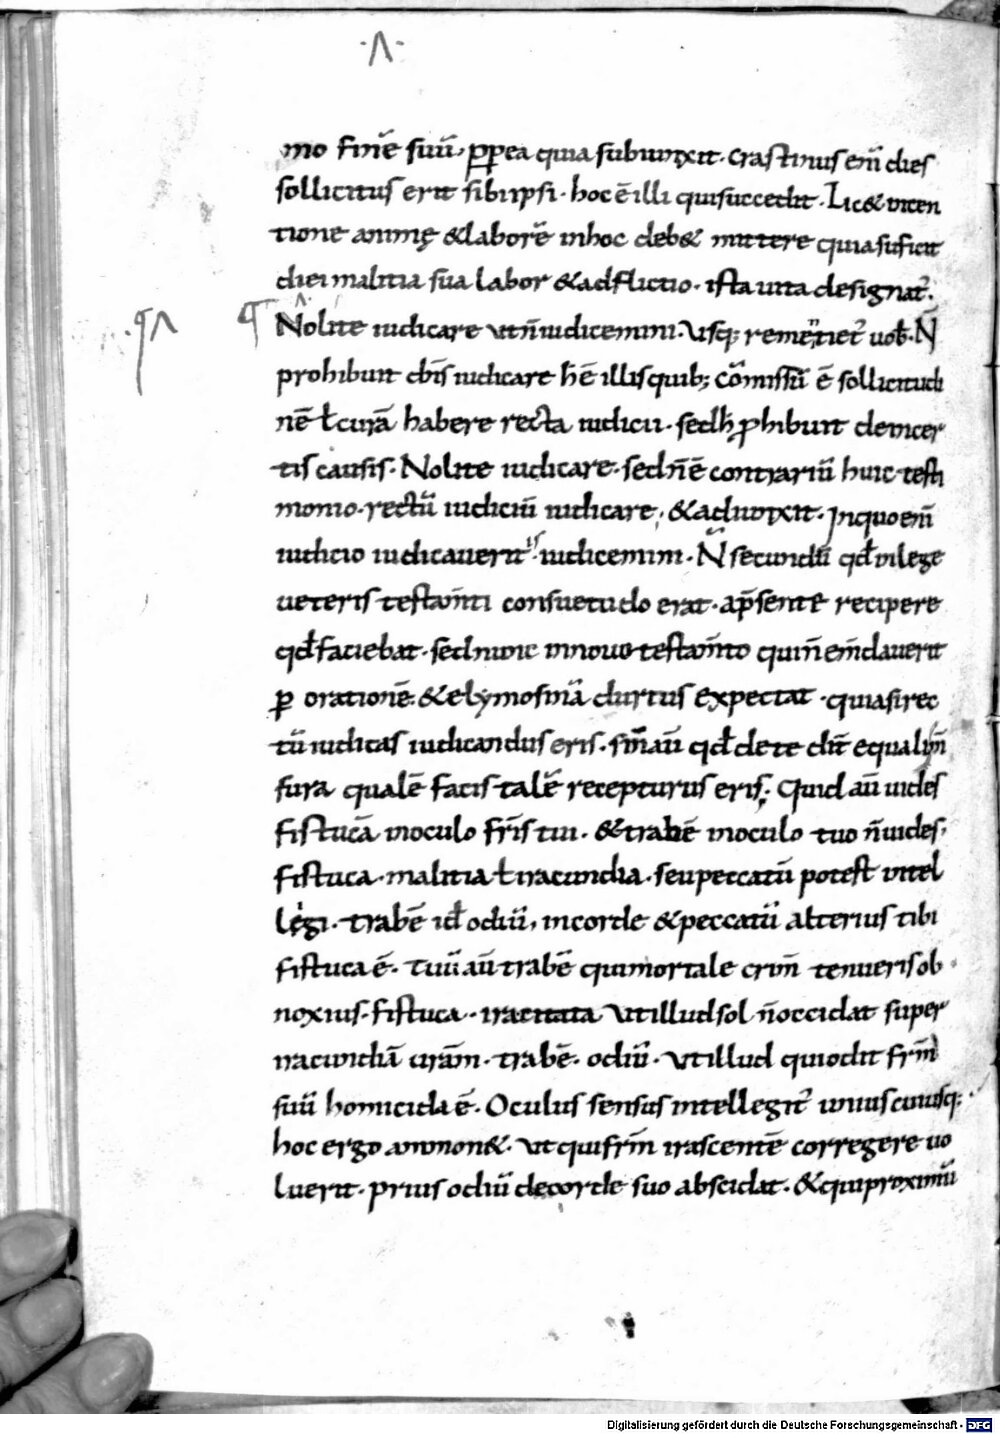 ·Λ·
mo finē suū, ꝓpea quia subiunxit. Crastinus em̄ dies
sollicitus erit sibi ipsi. hoc ē illi qui succedit. Lic& in cen
tione animę & laborē in hoc deb& mittere quia suficit
diei malitia sua labor & adflictio. ista uita designat᷑.
Nolite iudicare ut n̄ iudicemini. Usq; remetiet᷑ uob̄. N̄
prohibuit dn̄s iudicare h̄ ē illis quib; cōmissū ē sollicitudi
nē ł curā habere recta iudicii. sed h̄ ꝓhibuit de incer
tis causis. Nolite iudicare. sed n̄ ē contrariū huic testi
monio. rectū iudiciū iudicare; & adiunxit. In quo em̄
iudicio iudicauerit᷑is. iudicemini. N̄ secundū qđ in lege
ueteris testam̄ti consuetudo erat. a p̄sente recipere
qđ faciebat. sed nunc in nouo testam̄to qui n̄ em̄dauerit
ꝑ orationē. & elymosinā durius expectat. quia si rec
tū iudicas iudicandus eris. sin̄ aū qđ de te dn̄i equali m̄
sura qualē facis talē recepturus eris; Quid aū uides
fistucā in oculo fr̄is tui. & trabē in oculo tuo n̄ uides.
fistuca. malitia ł iracundia. seu peccatū potest intel
legi. trabē iđ odiū, in corde & peccatū alterius tibi
fistuca ē. tuū aū trabē qui mortale crim̄ tenueris ob
noxius. fistuca. iracitata ut illud sol n̄ occidat super
iracundiā uram̄. trabē. odiū. ut illud qui odit fr̄m
suū homicida ē. Oculus sensus intellegit᷑ unius cuiusq;.
hoc ergo ammon&. ut qui fr̄m irascentē corregere uo
luerit. prius odiū de corde suo abscidat. & qui proximū
Digitalisierung gefördert durch die Deutsche Forschungsgemeinschaft - DFG